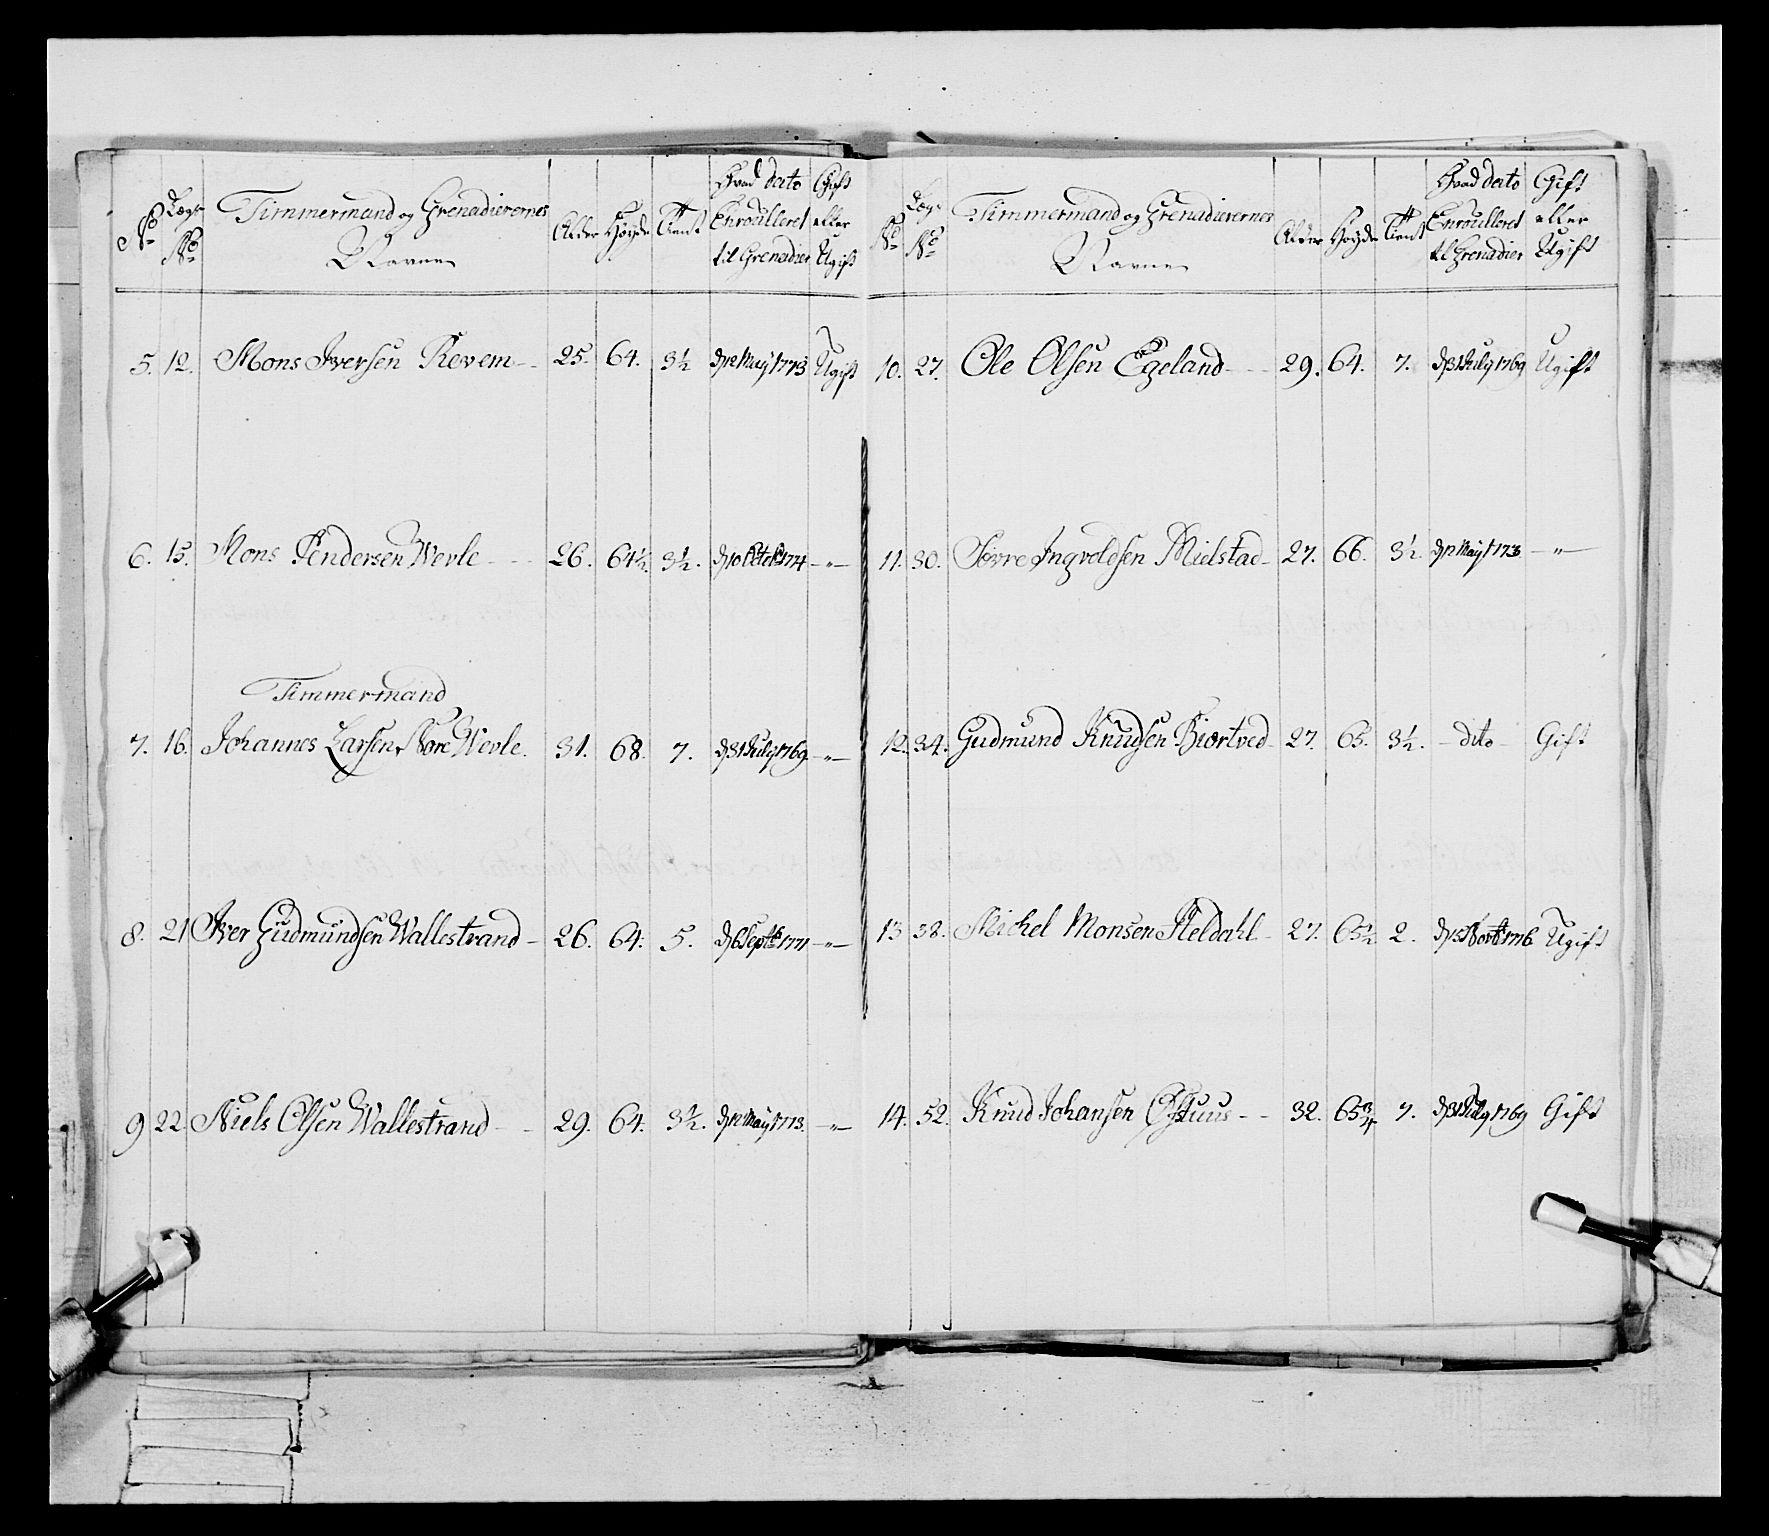 No Lægs No Timmermand og Grenadierernes Navne Alder Høyde Tient Hvad dato Enroulleret til Grenadier Gift eller Ugift
5. 12. Mons Iversen Revem 25. 64. 3½ d 12 May 1773 Ugift
6. 15. Mons Pendersen Wevle 26. 64½. 3½. d 10 Octob 1774 —"—
Timmermand
7. 16. Johannes Larsen Store Wevle. 31. 68. 7. d 31 July 1769 —"—
8. 21 Iver Gudmundsen Wallestrand 26. 64. 5. d 6 Septb 1771 —"—
9 22. Niels Olsen Wallestrand 29. 64. 3½. d 12 May 1773. —"—
No Lægs No Timmermand og Grenadierernes Navne Alder Høyde Tient Hvad dato Enroulleret til Grenadier Gift eller Ugift
10. 27. Ole Olsen Egeland 29. 64. 7. d 31 July 1769 Ugift
11. 30. Sevre Ingveldsen Mielstad 27. 66. 3½. d 12 May 1773 —"—
12. 34. Gudmund Knudsen Biortved 27. 65. 3½. dito Gift
13 38. Michel Monsen Heldahl 27. 65½ 2. d 15 Novb 1776 Ugift
14. 52. Knud Johansen 32. 65¾ 7. d 31 July 1769 Gift